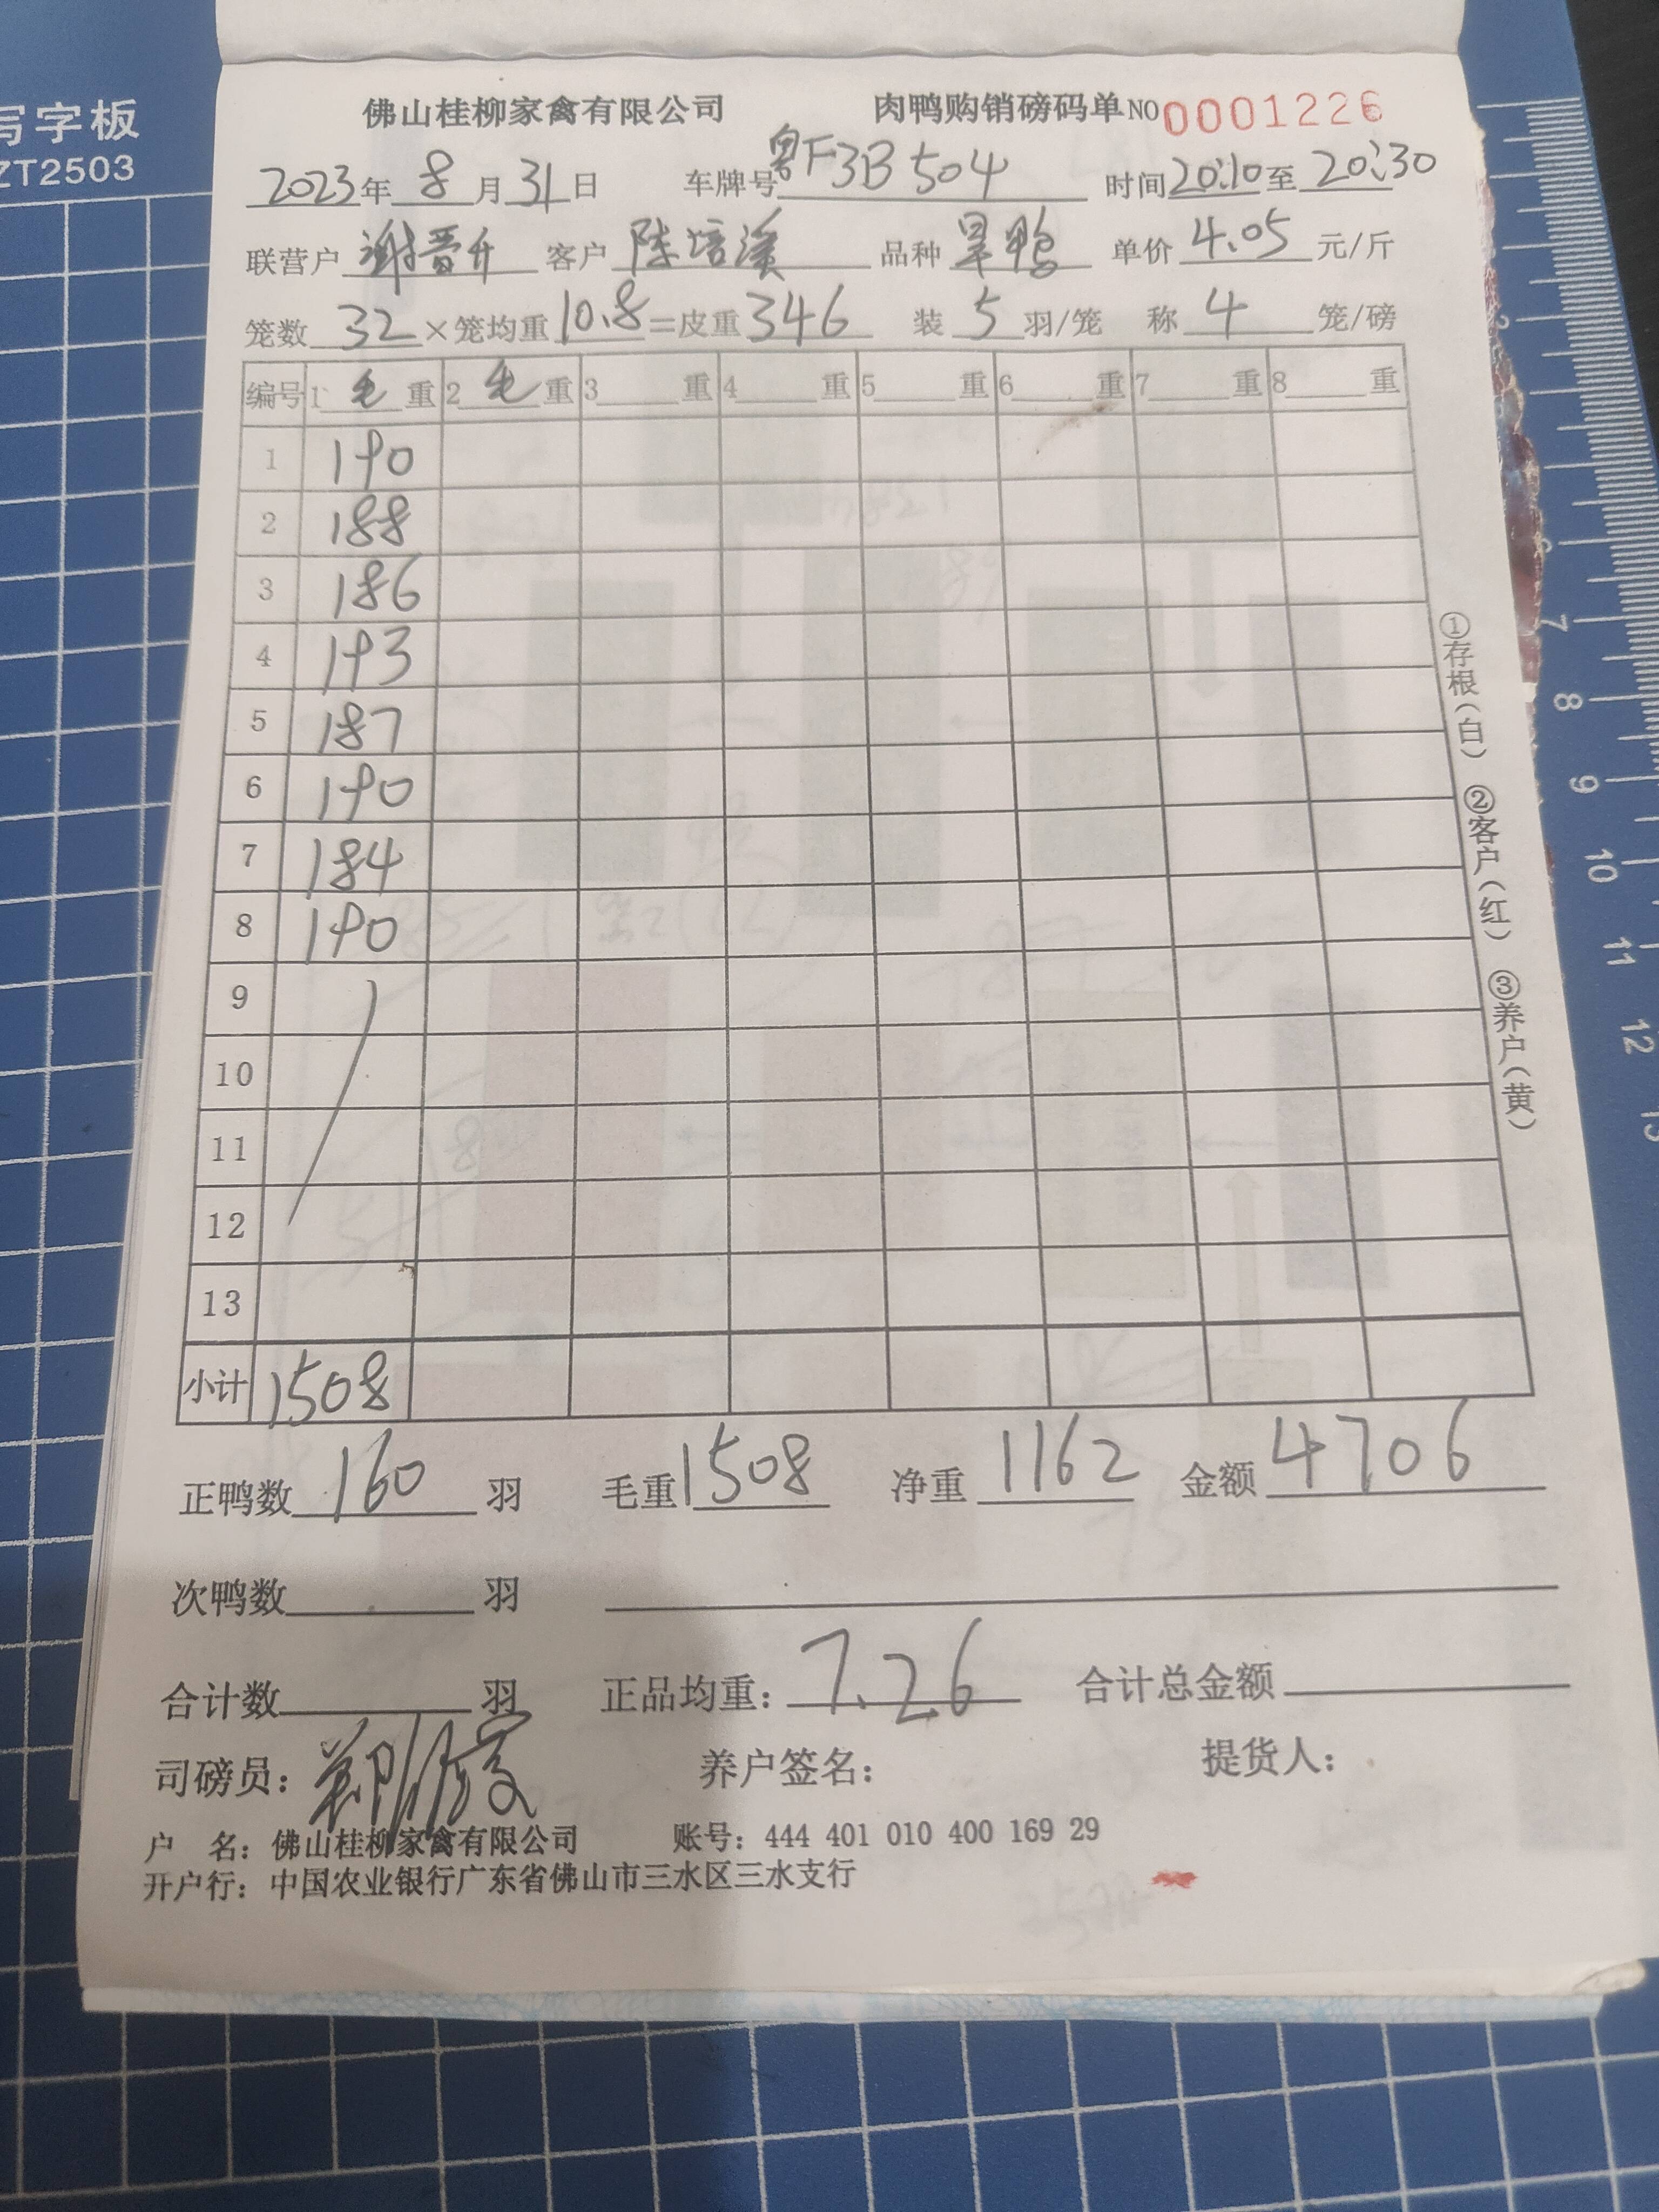 写字板
ZT2503
佛山桂柳家禽有限公司 肉鸭购销磅码单 NO 0001226
2023年 8 月 31 日 车牌号 粤F3B504 时间 20:10 至 20:30
联营户 谢晋升 客户 陈培溪 品种 旱鸭 单价 4.05 元/斤
笼数 32 ×笼均重 10.8 =皮重 346 装 5 羽/笼 称 4 笼/磅
编号 1 毛 重 2 毛 重 3 重 4 重 5 重 6 重 7 重 8 重
1 190
2 188
3 186
4 193
5 187
6 190
7 184
8 190
9
10
11
12
13
小计 1508
正鸭数 160 羽 毛重 1508 净重 1162 金额 4706
次鸭数 羽
合计数 羽 正品均重: 7.26 合计总金额
司磅员: 养户签名: 提货人:
户 名: 佛山桂柳家禽有限公司 账号: 444 401 010 400 169 29
开户行: 中国农业银行广东省佛山市三水区三水支行
①存根(白) ②客户(红) ③养户(黄)
6
7
8
9
10
11
12
13